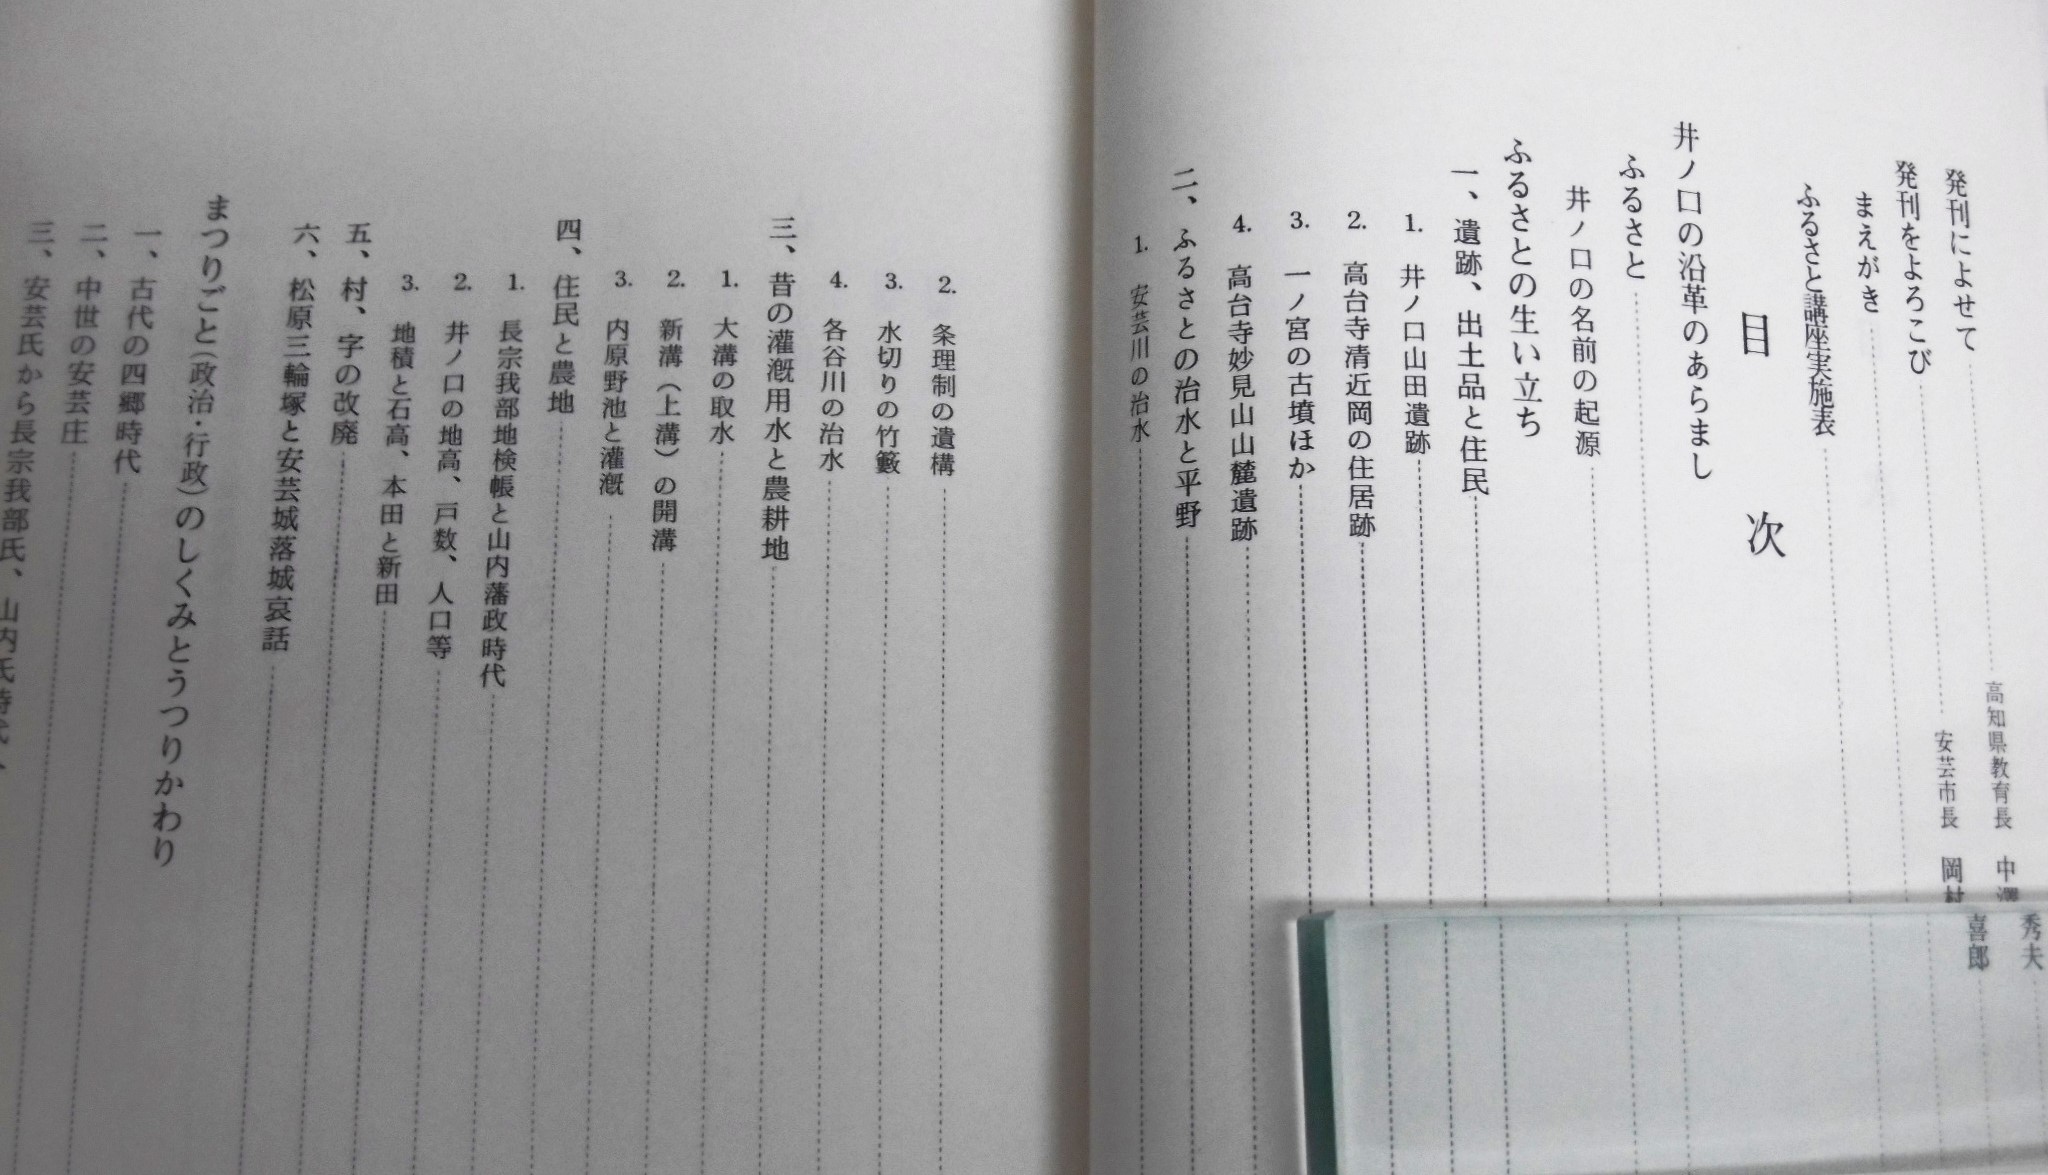 発刊によせて 高知県教育長 中澤 秀夫
発刊をよろこび 安芸市長 岡村 喜郎
まえがき
ふるさと講座実施表
目次
井ノ口の沿革のあらまし
ふるさと
井ノ口の名前の起源
ふるさとの生い立ち
一、遺跡、出土品と住民
1. 井ノ口山田遺跡
2. 高台寺清近岡の住居跡
3. 一ノ宮の古墳ほか
4. 高台寺妙見山山麓遺跡
二、ふるさとの治水と平野
1. 安芸川の治水
2. 条理制の遺構
3. 水切りの竹籔
4. 各谷川の治水
三、昔の灌漑用水と農耕地
1. 大溝の取水
2. 新溝（上溝）の開溝
3. 内原野池と灌漑
四、住民と農地
1. 長宗我部地検帳と山内藩政時代
2. 井ノ口の地高、戸数、人口等
3. 地積と石高、本田と新田
五、村、字の改廃
六、松原三輪塚と安芸城落城哀話
まつりごと（政治・行政）のしくみとうつりかわり
一、古代の四郷時代
二、中世の安芸庄
三、安芸氏から長宗我部氏、山内氏時代、